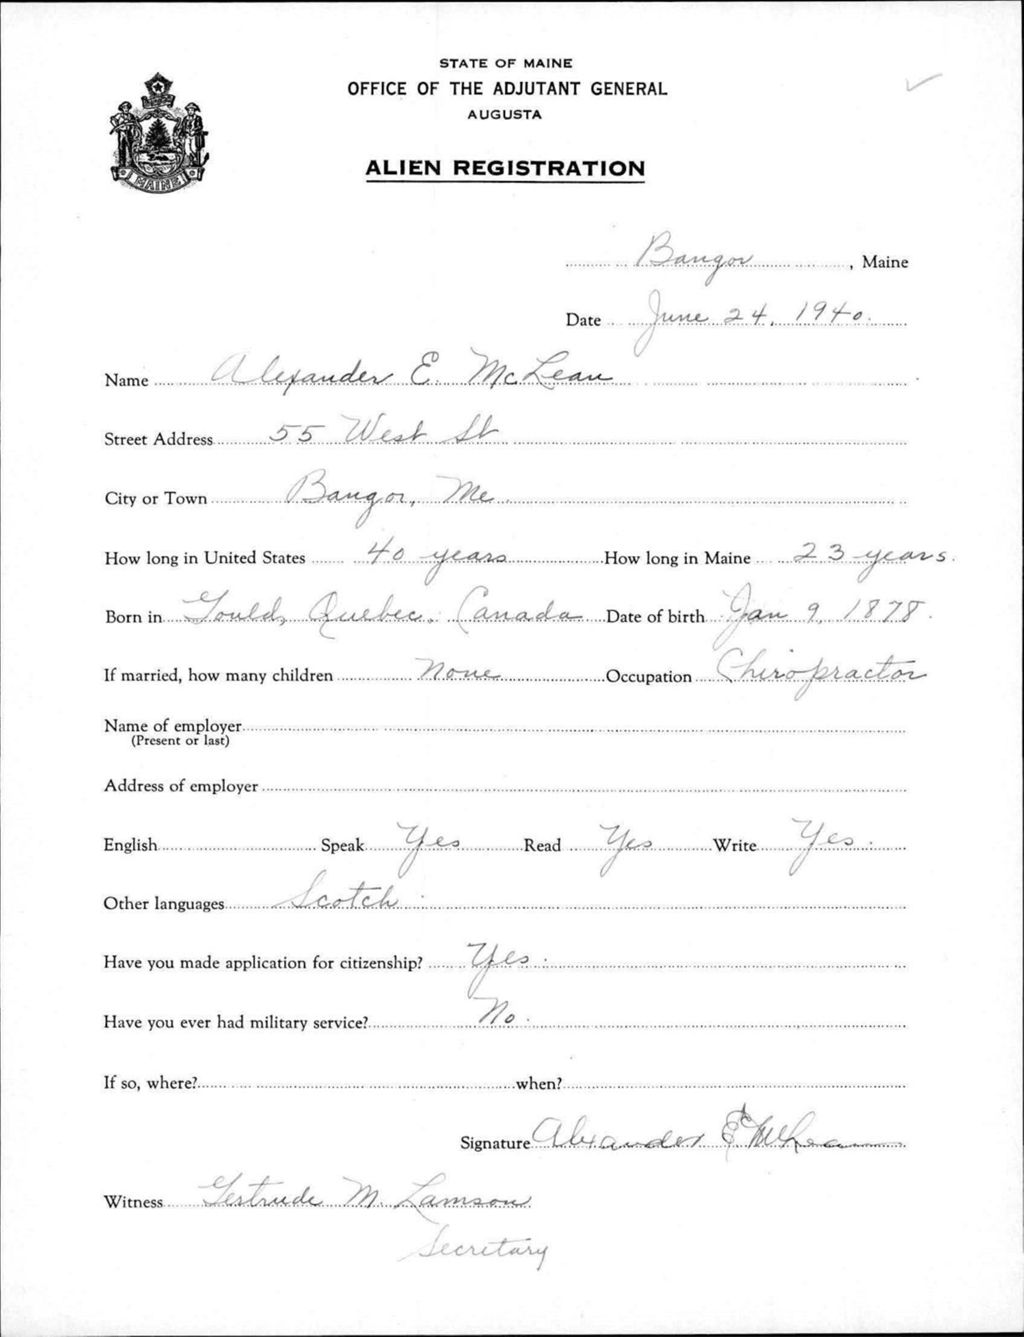 STATE OF MAINE
OFFICE OF THE ADJUTANT GENERAL
AUGUSTA
ALIEN REGISTRATION
MAINE
Bangor, Maine
Date June 24, 1940.
Name Alexander E. McLean
Street Address 55 West St
City or Town Bangor, Me.
How long in United States 40 years How long in Maine 23 years.
Born in Gould, Quebec, Canada Date of birth Jan 9, 1878.
If married, how many children None Occupation Chiropractor
Name of employer
(Present or last)
Address of employer
English Speak Yes Read Yes Write Yes.
Other languages Scotch.
Have you made application for citizenship? Yes.
Have you ever had military service? No.
If so, where? when?
Signature Alexander E McLean
Witness Gertrude M. Lamson
Secretary